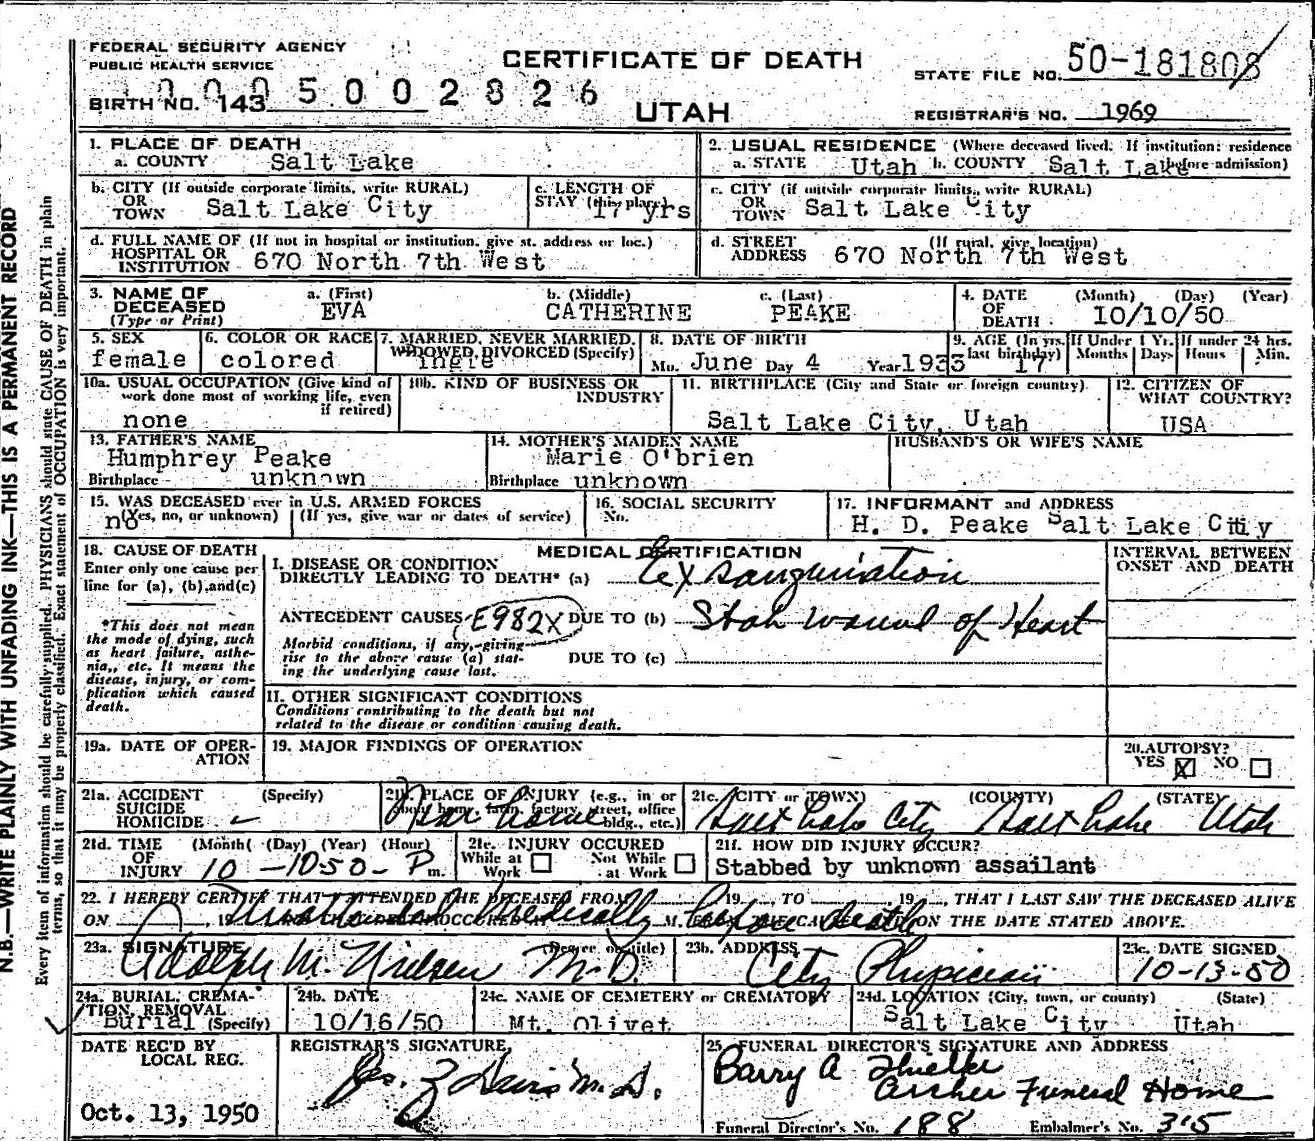 FEDERAL SECURITY AGENCY
PUBLIC HEALTH SERVICE
CERTIFICATE OF DEATH
STATE FILE NO. 50-181808
BIRTH NO. 143 5002826
UTAH
REGISTRAR'S NO. 1969
1. PLACE OF DEATH
a. COUNTY Salt Lake
2. USUAL RESIDENCE (Where deceased lived. If institution: residence before admission)
a. STATE Utah b. COUNTY Salt Lake
b. CITY (If outside corporate limits, write RURAL) OR TOWN Salt Lake City
c. LENGTH OF STAY (this place) 17 yrs
c. CITY (if outside corporate limits, write RURAL) OR TOWN Salt Lake City
d. FULL NAME OF (If not in hospital or institution, give st. address or loc.)
HOSPITAL OR INSTITUTION 670 North 7th West
d. STREET ADDRESS (If rural, give location) 670 North 7th West
3. NAME OF DECEASED (Type or Print)
a. (First) EVA
b. (Middle) CATHERINE
c. (Last) PEAKE
4. DATE OF DEATH (Month) (Day) (Year) 10/10/50
5. SEX female
6. COLOR OR RACE colored
7. MARRIED, NEVER MARRIED, WIDOWED, DIVORCED (Specify) ingle
8. DATE OF BIRTH
Mo. June Day 4 Year 1933
9. AGE (In yrs. last birthday) 17
If Under 1 Yr. Months Days
If under 24 hrs. Hours Min.
10a. USUAL OCCUPATION (Give kind of work done most of working life, even if retired) none
10b. KIND OF BUSINESS OR INDUSTRY
11. BIRTHPLACE (City and State or foreign country)
Salt Lake City, Utah
12. CITIZEN OF WHAT COUNTRY? USA
13. FATHER'S NAME
Humphrey Peake
Birthplace unknown
14. MOTHER'S MAIDEN NAME
Marie O'brien
Birthplace unknown
HUSBAND'S OR WIFE'S NAME
15. WAS DECEASED ever in U.S. ARMED FORCES
no (Yes, no, or unknown) (If yes, give war or dates of service)
16. SOCIAL SECURITY No.
17. INFORMANT and ADDRESS
H. D. Peake Salt Lake City
18. CAUSE OF DEATH
Enter only one cause per line for (a), (b), and (c)
*This does not mean the mode of dying, such as heart failure, asthenia, etc. It means the disease, injury, or complication which caused death.
MEDICAL CERTIFICATION
INTERVAL BETWEEN ONSET AND DEATH
I. DISEASE OR CONDITION DIRECTLY LEADING TO DEATH* (a) Exsanguination
ANTECEDENT CAUSES E982X DUE TO (b) Stab wound of Heart
Morbid conditions, if any, giving rise to the above cause (a) stating the underlying cause last.
DUE TO (c)
II. OTHER SIGNIFICANT CONDITIONS
Conditions contributing to the death but not related to the disease or condition causing death.
19a. DATE OF OPERATION
19. MAJOR FINDINGS OF OPERATION
20. AUTOPSY?
YES X NO
21a. ACCIDENT SUICIDE HOMICIDE (Specify)
21b. PLACE OF INJURY (e.g., in or about home, farm, factory, street, office bldg., etc.) Near home
21c. (CITY or TOWN) (COUNTY) (STATE)
Salt Lake City Salt Lake Utah
21d. TIME OF INJURY (Month) (Day) (Year) (Hour) 10-10 50- P m.
21e. INJURY OCCURED
While at Work Not While at Work
21f. HOW DID INJURY OCCUR?
Stabbed by unknown assailant
22. I HEREBY CERTIFY THAT I ATTENDED THE DECEASED FROM 19 TO 19, THAT I LAST SAW THE DECEASED ALIVE
ON 19 M. ON THE DATE STATED ABOVE.
medically before death
23a. SIGNATURE (Degree or title)
Adolph M. Nielsen M.D.
23b. ADDRESS
City Physician
23c. DATE SIGNED
10-13-50
24a. BURIAL, CREMATION, REMOVAL (Specify) Burial
24b. DATE
10/16/50
24c. NAME OF CEMETERY or CREMATORY
Mt. Olivet
24d. LOCATION (City, town, or county) (State)
Salt Lake City Utah
DATE REC'D BY LOCAL REG.
Oct. 13, 1950
REGISTRAR'S SIGNATURE
Jos. Z Davis M.D.
25. FUNERAL DIRECTOR'S SIGNATURE AND ADDRESS
Barry A
Archer Funeral Home
Funeral Director's No. 188 Embalmer's No. 315
N.B.—WRITE PLAINLY WITH UNFADING INK—THIS IS A PERMANENT RECORD
Every item of information should be carefully supplied. PHYSICIANS should state CAUSE OF DEATH in plain
terms, so that it may be properly classified. Exact statement of OCCUPATION is very important.